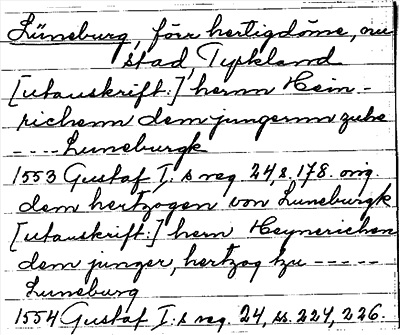 Lüneburg, förr hertigdöme, nu
stad, Tyskland
[utanskrift:] hernn Hein-
richenn dem jungernn zuhe
----Luneburgk
1553 Gustaf I:s reg 24, s. 178. orig.
dem hertzogen von Luneburgk
[utanskrift:] hern Heynerichen
dem junger, hertzog tzu -----
Luneburg
1554 Gustaf I:s reg. 24, ss. 224, 226.